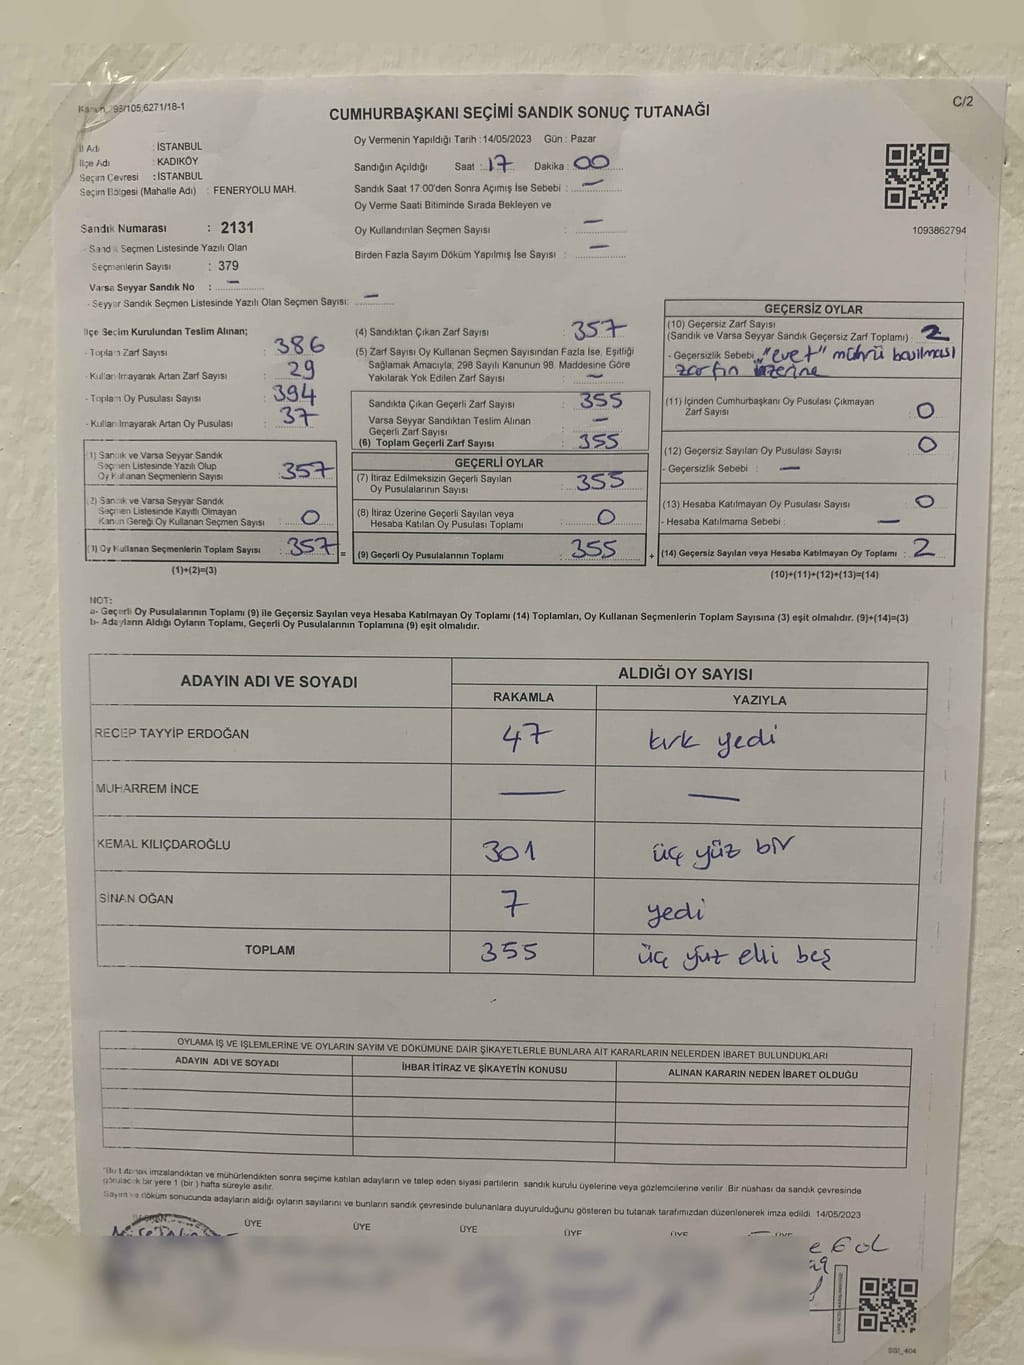 Kanun_298/105;6271/18-1
C/2
CUMHURBAŞKANI SEÇİMİ SANDIK SONUÇ TUTANAĞI
İl Adı : İSTANBUL
İlçe Adı : KADIKÖY
Seçim Çevresi : İSTANBUL
Seçim Bölgesi (Mahalle Adı) : FENERYOLU MAH.
Sandık Numarası : 2131
- Sandık Seçmen Listesinde Yazılı Olan
Seçmenlerin Sayısı : 379
Varsa Seyyar Sandık No : —
- Seyyar Sandık Seçmen Listesinde Yazılı Olan Seçmen Sayısı: —
Oy Vermenin Yapıldığı Tarih : 14/05/2023 Gün : Pazar
Sandığın Açıldığı Saat : 17 Dakika : 00
Sandık Saat 17:00'den Sonra Açımış İse Sebebi : —
Oy Verme Saati Bitiminde Sırada Bekleyen ve
Oy Kullandırılan Seçmen Sayısı : —
Birden Fazla Sayım Döküm Yapılmış İse Sayısı : —
1093862794
İlçe Secim Kurulundan Teslim Alınan;
- Toplam Zarf Sayısı : 386
- Kullanılmayarak Artan Zarf Sayısı : 29
- Toplam Oy Pusulası Sayısı : 394
- Kullanılmayarak Artan Oy Pusulası : 37
(1) Sandık ve Varsa Seyyar Sandık
Seçmen Listesinde Yazılı Olup
Oy Kullanan Seçmenlerin Sayısı : 357
(2) Sandık ve Varsa Seyyar Sandık
Seçmen Listesinde Kayıtlı Olmayan
Kanun Gereği Oy Kullanan Seçmen Sayısı : 0
(3) Oy Kullanan Seçmenlerin Toplam Sayısı : 357 =
(1)+(2)=(3)
(4) Sandıktan Çıkan Zarf Sayısı : 357
(5) Zarf Sayısı Oy Kullanan Seçmen Sayısından Fazla İse, Eşitliği
Sağlamak Amacıyla; 298 Sayılı Kanunun 98. Maddesine Göre
Yakılarak Yok Edilen Zarf Sayısı : —
Sandıkta Çıkan Geçerli Zarf Sayısı : 355
Varsa Seyyar Sandıktan Teslim Alınan
Geçerli Zarf Sayısı : —
(6) Toplam Geçerli Zarf Sayısı : 355
GEÇERLİ OYLAR
(7) İtiraz Edilmeksizin Geçerli Sayılan
Oy Pusulalarının Sayısı : 355
(8) İtiraz Üzerine Geçerli Sayılan veya
Hesaba Katılan Oy Pusulası Toplamı : 0
(9) Geçerli Oy Pusulalarının Toplamı : 355 +
GEÇERSİZ OYLAR
(10) Geçersiz Zarf Sayısı
(Sandık ve Varsa Seyyar Sandık Geçersiz Zarf Toplamı) : 2
- Geçersizlik Sebebi : "evet" mührü basılması
zarfın üzerine
(11) İçinden Cumhurbaşkanı Oy Pusulası Çıkmayan
Zarf Sayısı : 0
(12) Geçersiz Sayılan Oy Pusulası Sayısı : 0
- Geçersizlik Sebebi : —
(13) Hesaba Katılmayan Oy Pusulası Sayısı : 0
- Hesaba Katılmama Sebebi : —
(14) Geçersiz Sayılan veya Hesaba Katılmayan Oy Toplamı : 2
(10)+(11)+(12)+(13)=(14)
NOT:
a- Geçerli Oy Pusulalarının Toplamı (9) ile Geçersiz Sayılan veya Hesaba Katılmayan Oy Toplamı (14) Toplamları, Oy Kullanan Seçmenlerin Toplam Sayısına (3) eşit olmalıdır. (9)+(14)=(3)
b- Adayların Aldığı Oyların Toplamı, Geçerli Oy Pusulalarının Toplamına (9) eşit olmalıdır.
ADAYIN ADI VE SOYADI
ALDIĞI OY SAYISI
RAKAMLA YAZIYLA
RECEP TAYYİP ERDOĞAN 47 kırk yedi
MUHARREM İNCE — —
KEMAL KILIÇDAROĞLU 301 üç yüz bir
SİNAN OĞAN 7 yedi
TOPLAM 355 üç yüz elli beş
OYLAMA İŞ VE İŞLEMLERİNE VE OYLARIN SAYIM VE DÖKÜMÜNE DAİR ŞİKAYETLERLE BUNLARA AİT KARARLARIN NELERDEN İBARET BULUNDUKLARI
ADAYIN ADI VE SOYADI İHBAR İTİRAZ VE ŞİKAYETİN KONUSU ALINAN KARARIN NEDEN İBARET OLDUĞU
*Bu tutanak imzalandıktan ve mühürlendikten sonra seçime katılan adayların ve talep eden siyasi partilerin sandık kurulu üyelerine veya gözlemcilerine verilir .Bir nüshası da sandık çevresinde
görülecek bir yere 1 (bir ) hafta süreyle asılır.
Sayım ve döküm sonucunda adayların aldığı oyların sayılarını ve bunların sandık çevresinde bulunanlara duyurulduğunu gösteren bu tutanak tarafımızdan düzenlenerek imza edildi. 14/05/2023
ÜYE ÜYE ÜYE ÜYE ÜYE ÜYE